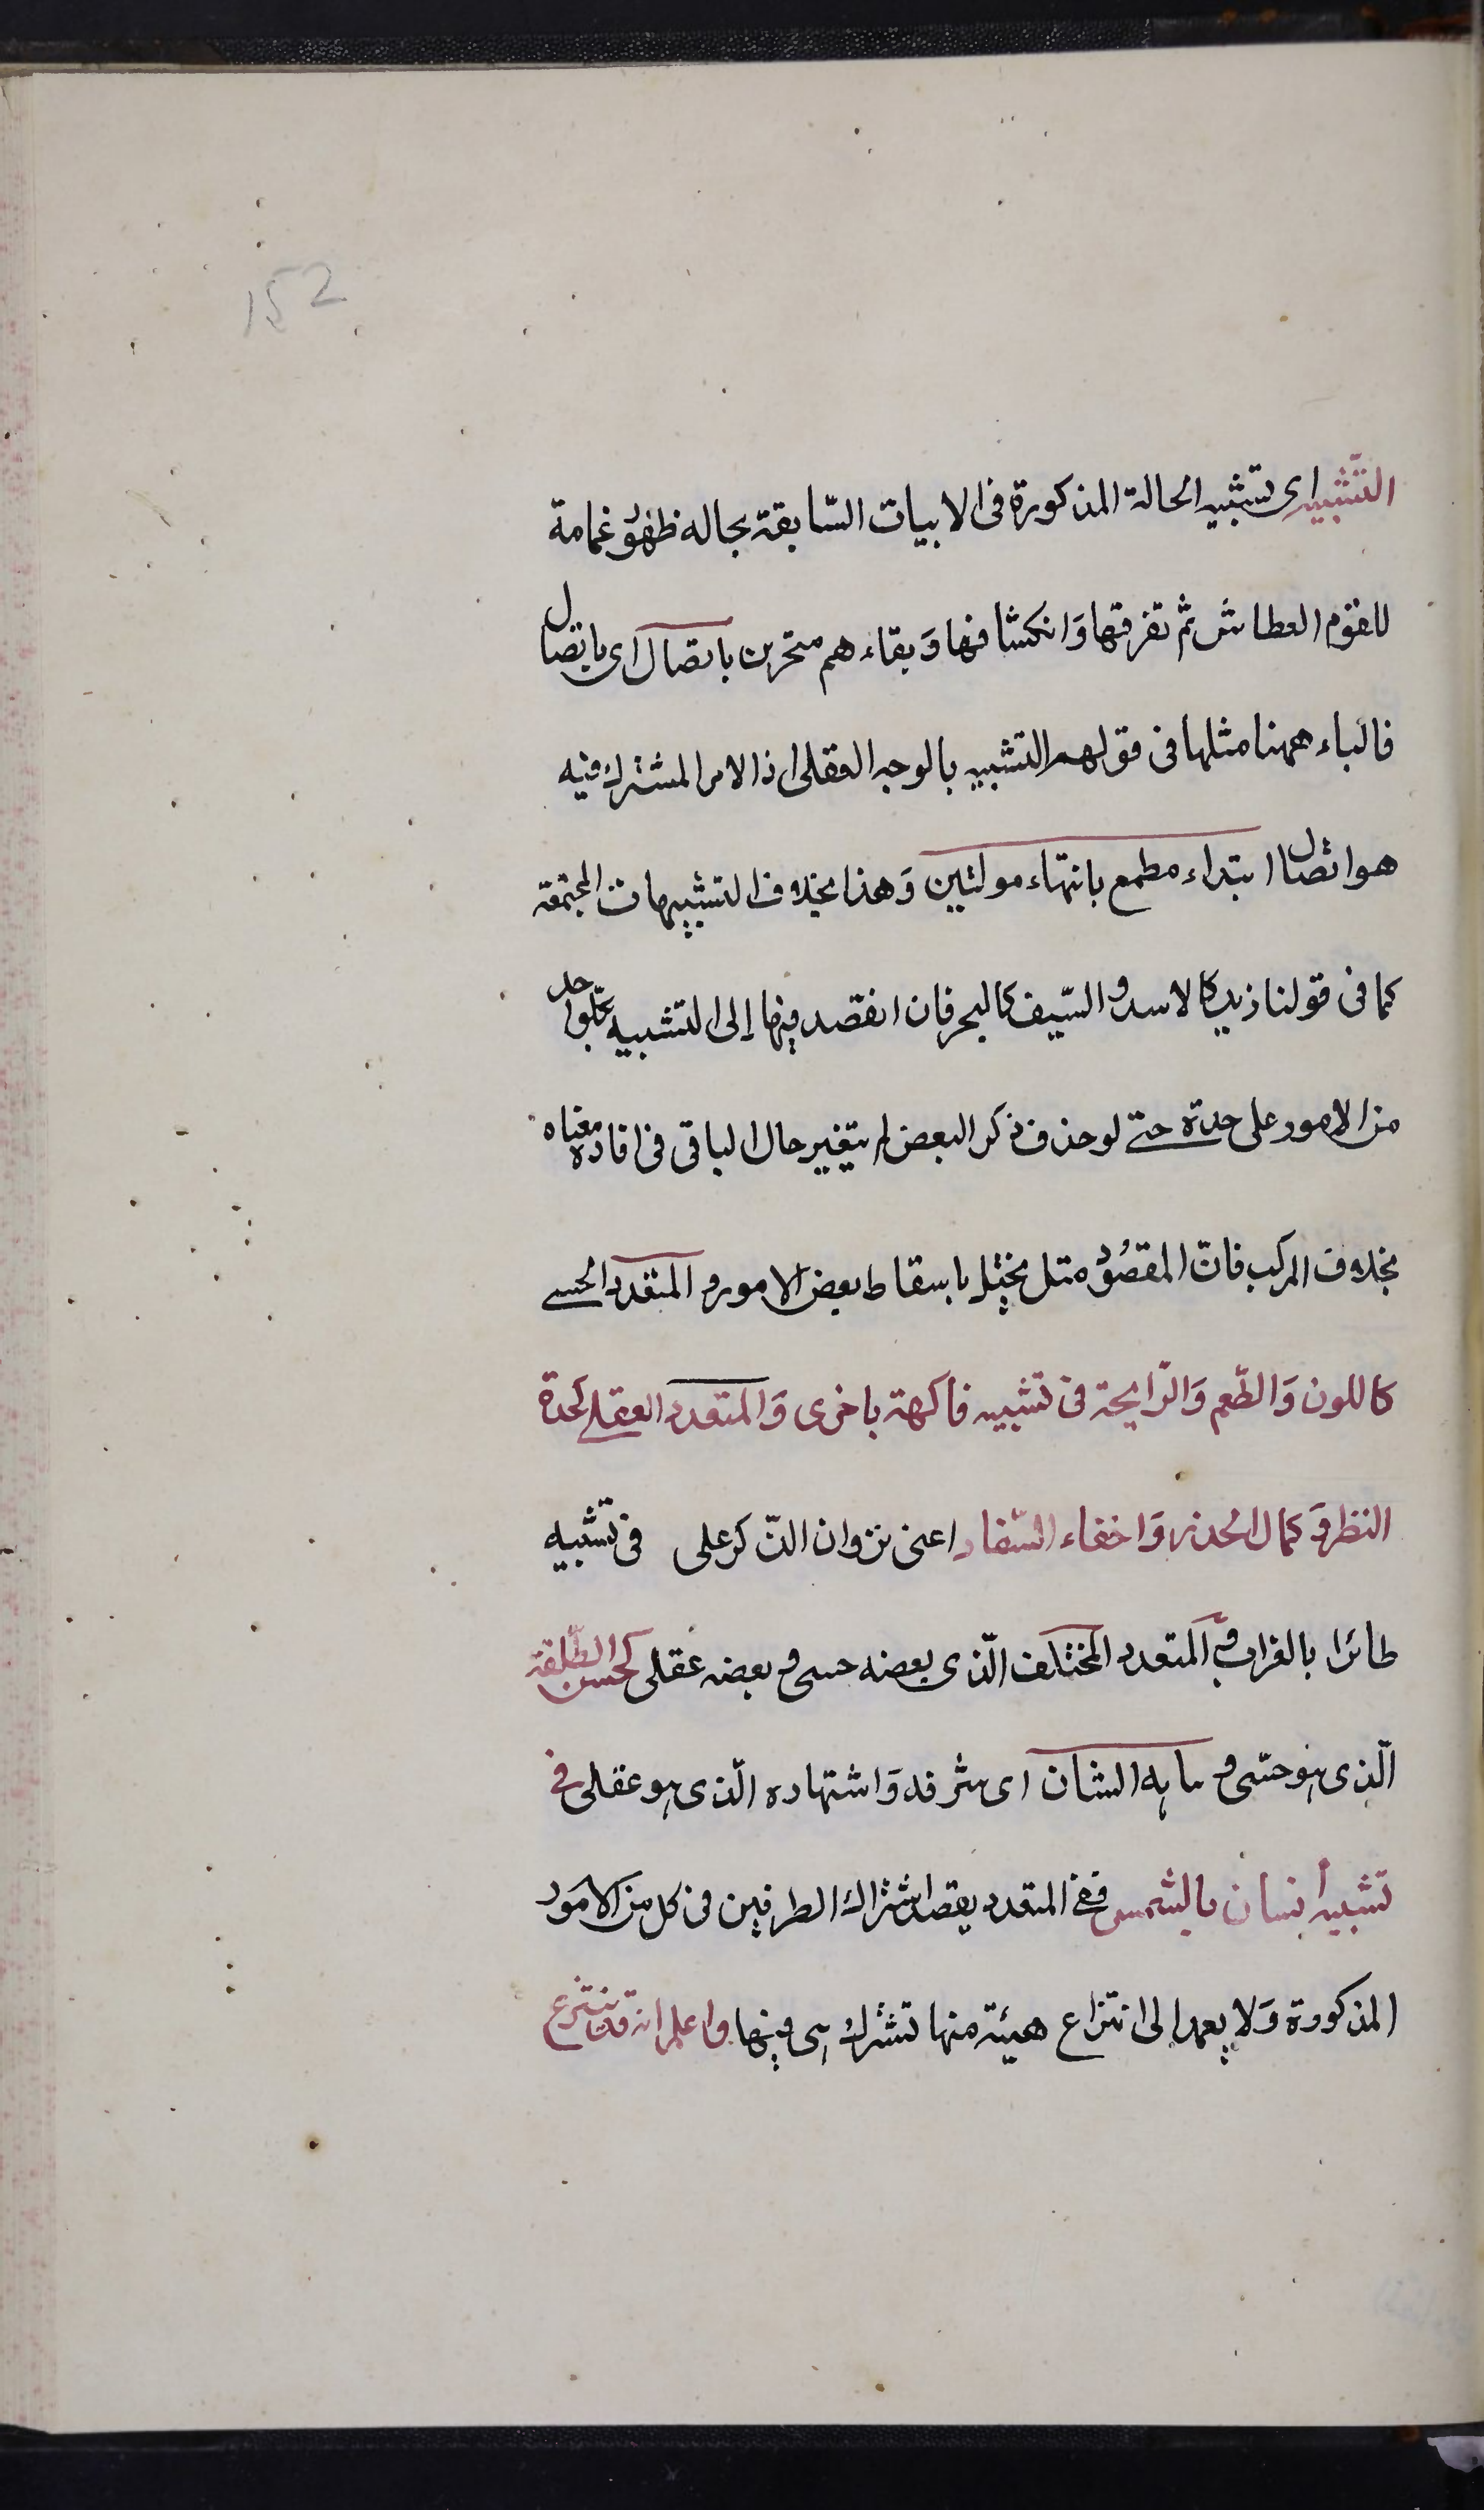 152
التّشبيه اى تشبيه الحالة المذكورة فى الابيات السّابقة بحاله ظهوُر غمامة
للقوم العطاش ثم تفرقها وَانكشافها وَبقاءهم متحرين باتصال اى باتصال
فالباء ههنا مثلها فى قولهم التشبيه بالوجه العقلى اذ الامر المشترك فيه
هو اتصال ابتداء مطمع بانتهاء مولتين وَهذا بخلاف التشبيهات المجتمعة
كما فى قولنا زيد كالاسد و السّيف كالبحر فان القصد فيها إلى التشبيه بكلّ واحد
من الامور على حدة حتے لو حذف ذكر البعض لم يتغير حال الباقى فى افادة معناه
بخلاف المركب فانّ المقصُوُد منه يختل باسقاط بعض الامور و المتعدد الحسے
كاللون وَالطّعم وَالرّايحة فى تشبيه فاكهة باخرى وَالمتعدد العقلے كحدة
النظر وَ كمال الحذر وَاخفاء السّفاد اعنى نزوان الذّكر على فى تشبيه
طائرا بالغراب و المتعدد المختلف الّذى بعضه حسى و بعضه عقلى كحسن الطّلعة
الّذى هو حسّى و نباهه الشان اى شرفه وَاشتهاره الّذى هو عقلى فى
تشبيه أنسان بالشمس ففے المتعدد يقصد اشتراك الطرفين فى كل من الامور
المذكورة وَلا يعمد الى انتزاع هيئة منها تشترك هى فيها واعلم انه قد ينتزع